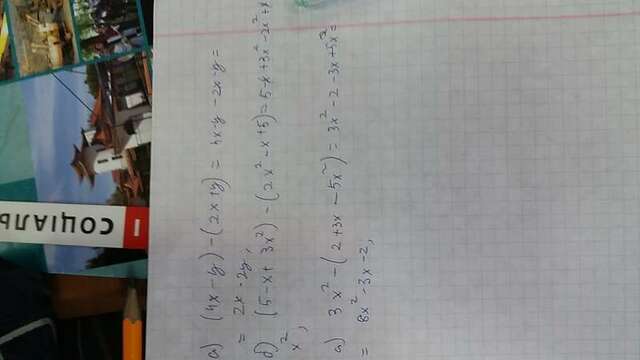 СОЦІАЛЬ
I
а) (4x - y) - (2x + y) = 4x - y - 2x - y =
= 2x - 2y;
б) (5 - x + 3x²) - (2x² - x + 5) = 5 - x + 3x² - 2x² + x
x²;
а) 3x² - (2 + 3x - 5x²) = 3x² - 2 - 3x + 5x² =
= 8x² - 3x - 2,